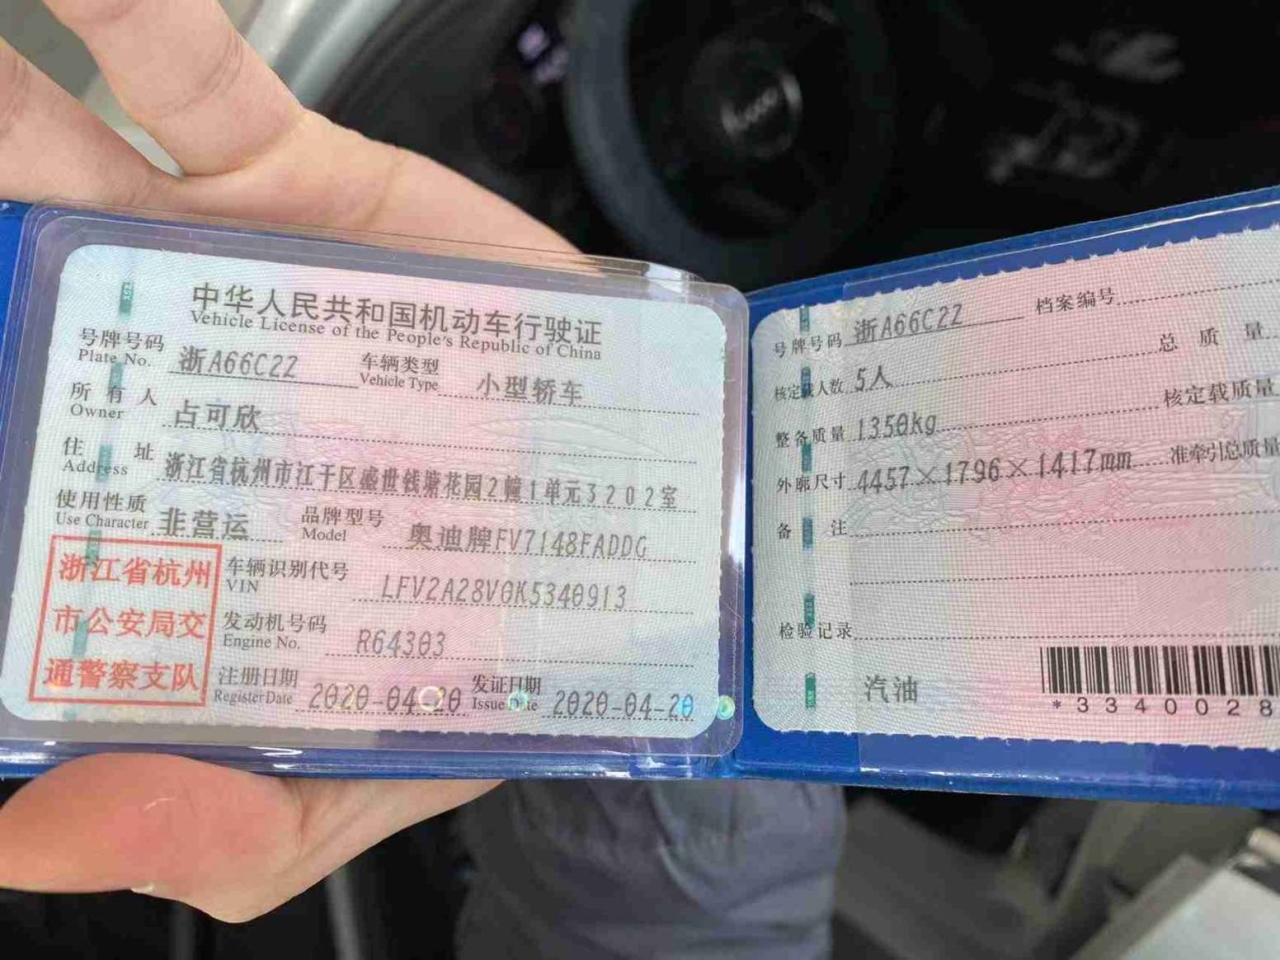 中华人民共和国机动车行驶证
Vehicle License of the People's Republic of China
号牌号码 浙A66C2Z 车辆类型 小型轿车
Plate No. Vehicle Type
所有人 占可欣
Owner
住址 浙江省杭州市江干区盛世钱塘花园2幢1单元3202室
Address
使用性质 非营运 品牌型号 奥迪牌FV7148FADDG
Use Character Model
浙江省杭州
市公安局交
通警察支队
车辆识别代号 LFV2A28V0K5340913
VIN
发动机号码 R64303
Engine No.
注册日期 2020-04-20 发证日期 2020-04-20
Register Date Issue Date
号牌号码 浙A66C2Z 档案编号
核定载人数 5人 总质量
整备质量 1350kg 核定载质量
外廓尺寸 4457×1796×1417mm 准牵引总质量
备注
检验记录
汽油
*3340028